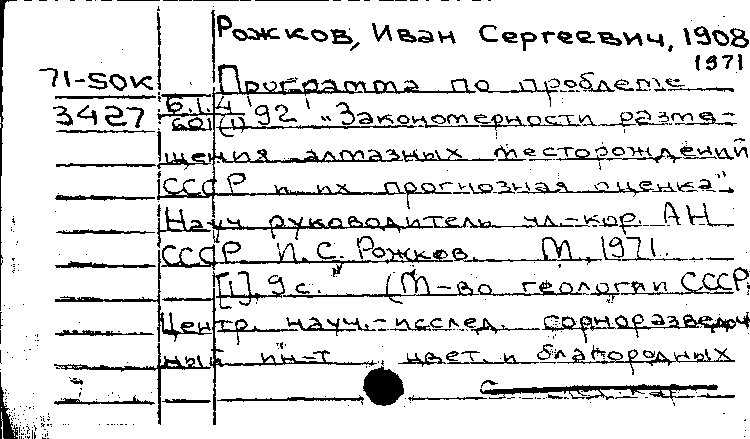 Рожков, Иван Сергеевич, 1908
1971
71-50К Программа по проблеме
3427 6.1.4 '92' „Закономерности разме-
601(1)
щения алмазных месторождений
СССР и их прогнозная оценка".
Науч руководитель чл.-кор. АН
СССР И. С. Рожков. М., 1971.
[1], 9 с. (М-во геологии СССР,
Центр. науч.-исслед. горноразведоч
ный ин-т цвет. и благородных